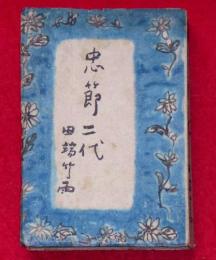 忠節二代
田鍋竹雨